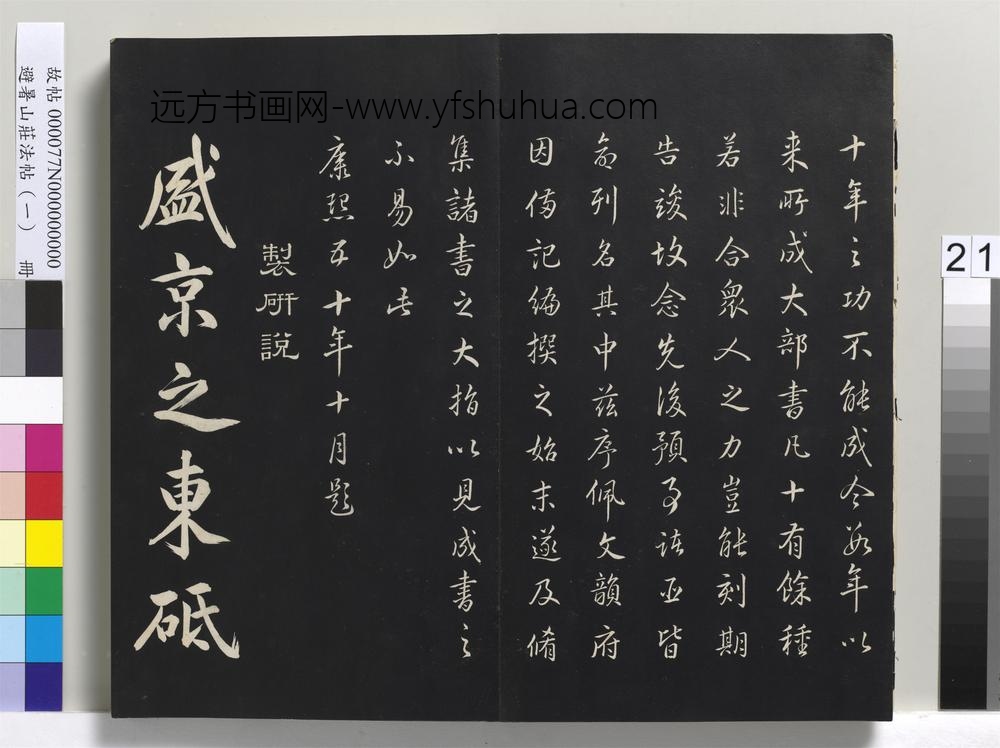 远方书画网-www.yfshuhua.com
十年之功不能成今數年以
来所成大部書凡十有餘種
若非合眾人之力豈能刻期
告竣故念先後預事諸臣皆
命列名其中茲序佩文韻府
因備記編撰之始末遂及脩
集諸書之大指以見成書之
不易如此
康熙五十年十月題
製研說
盛京之東砥
故帖000077N000000000
避暑山莊法帖(一) 冊
21